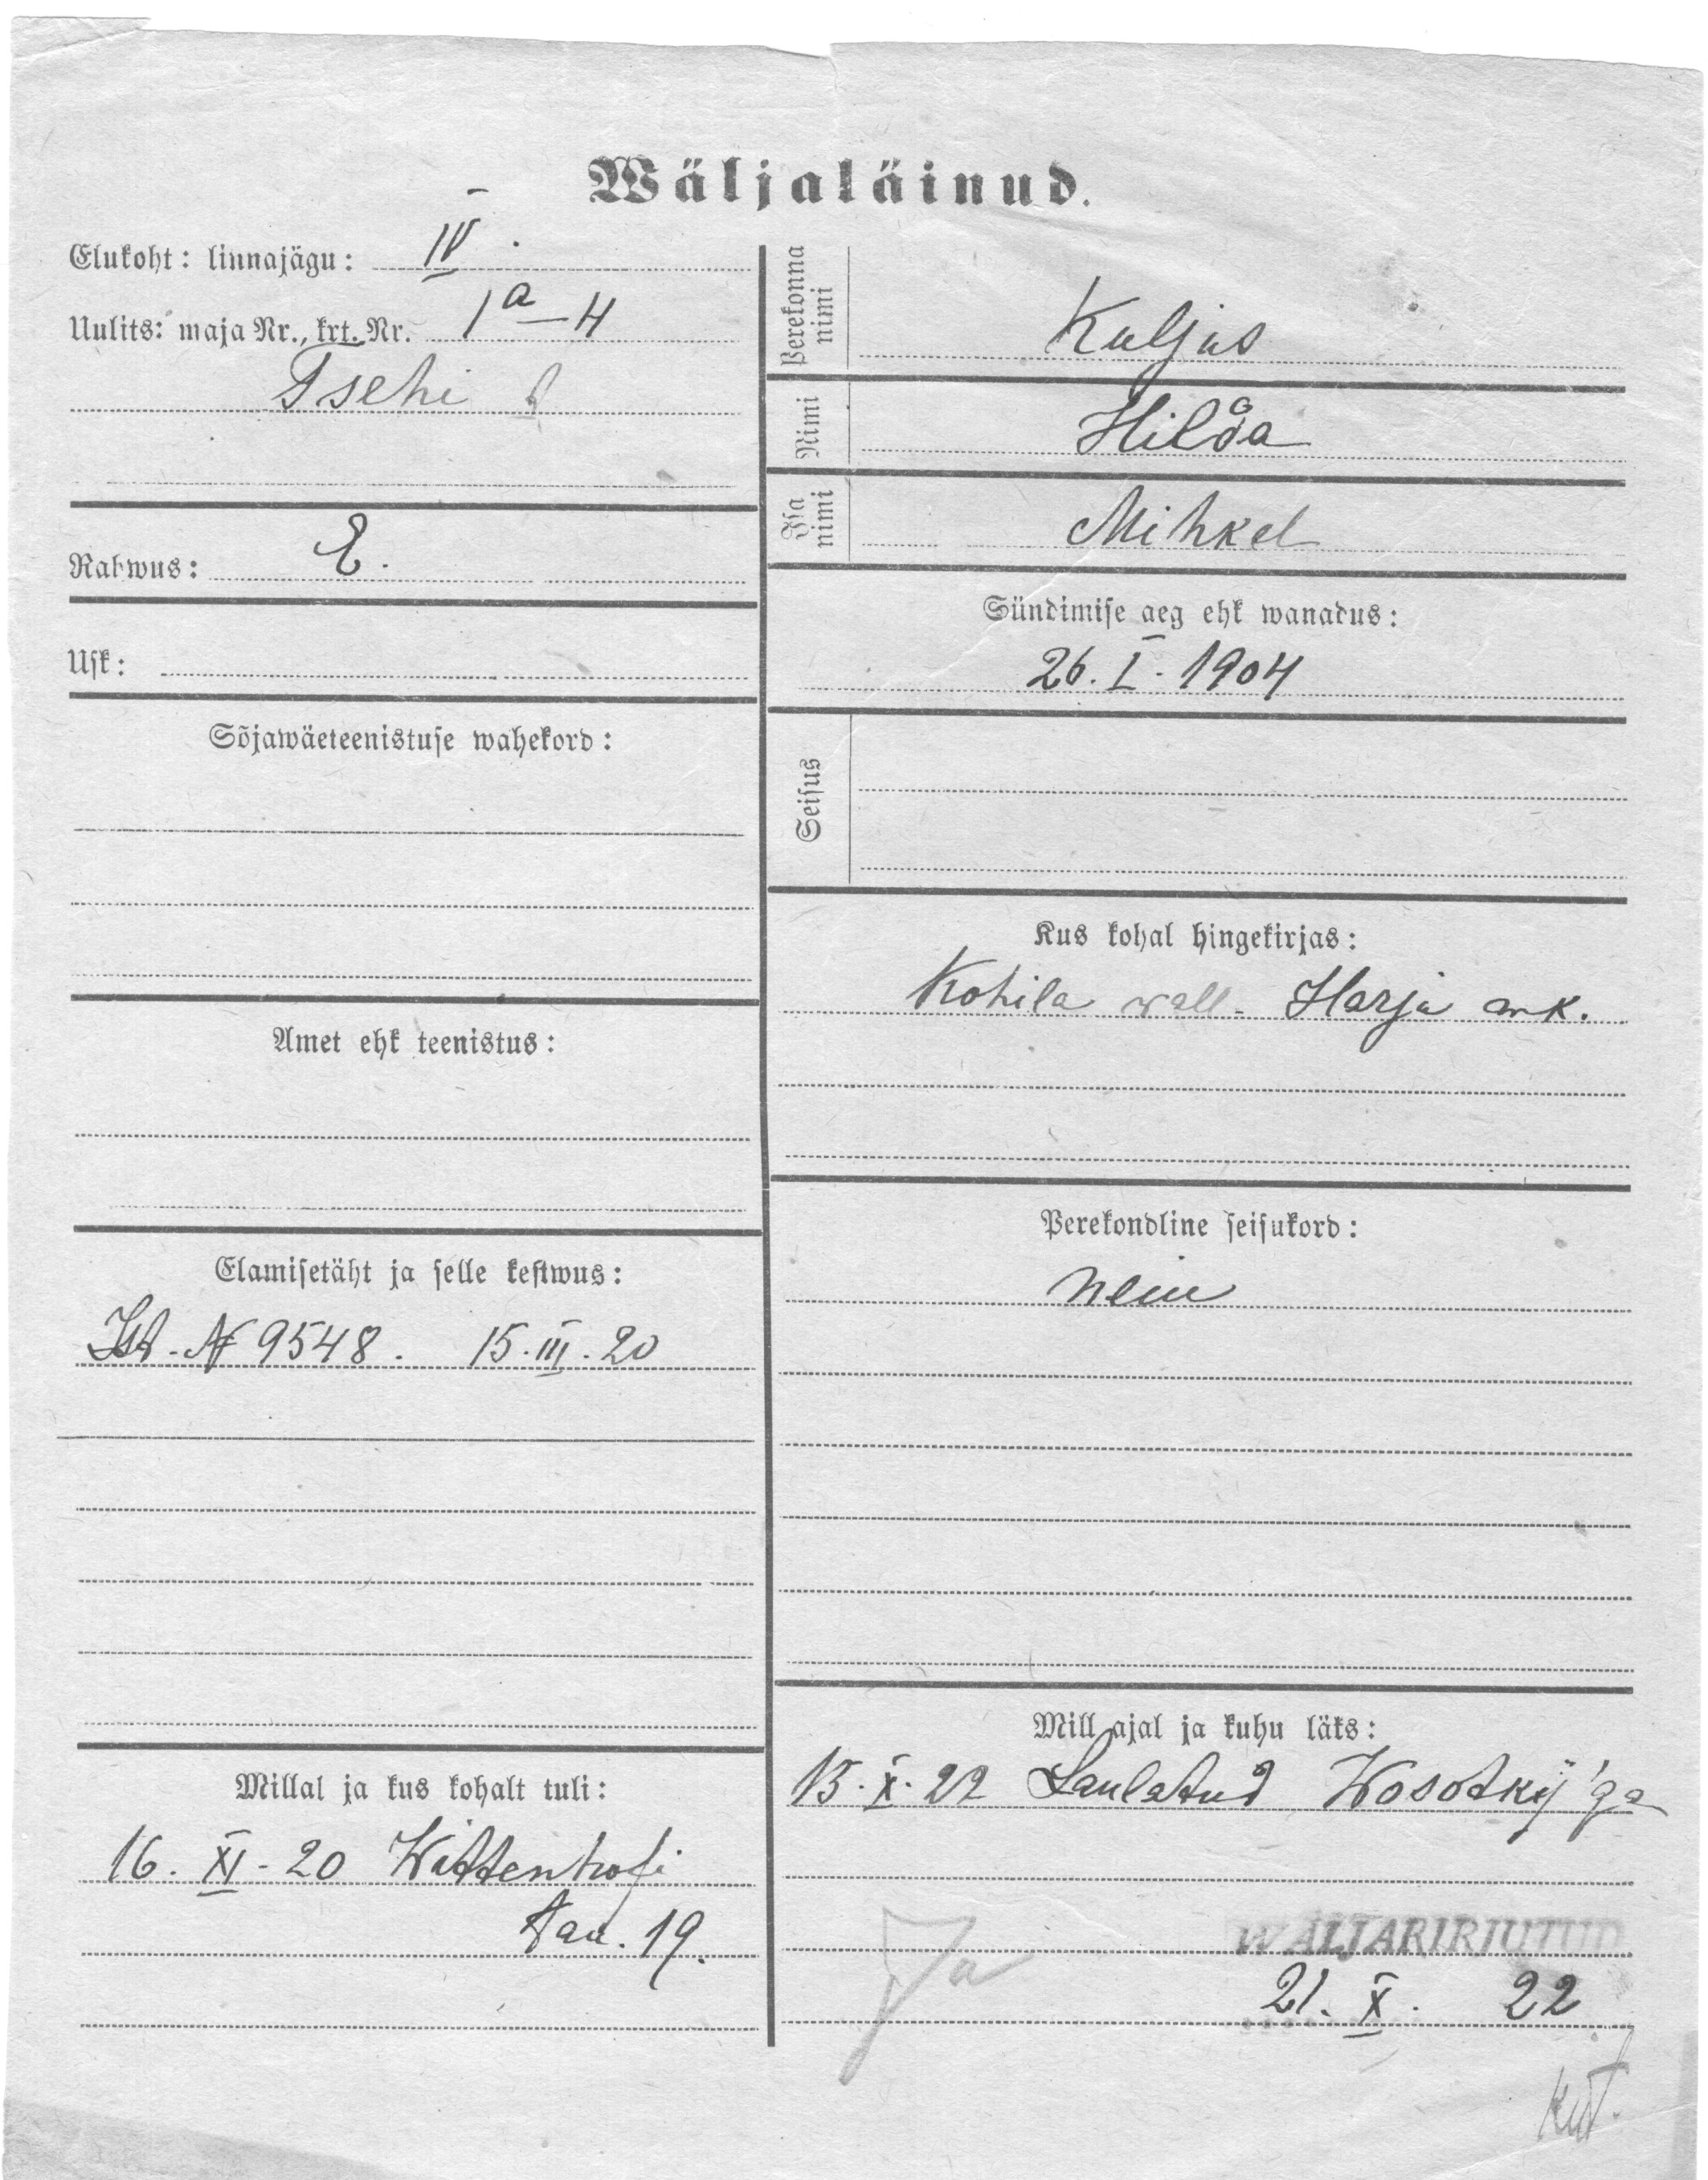 Wäljaläinud.
Elukoht: linnajägu: IV.
Uulits: maja Nr., krt. Nr. 1a–4
Tsehi
Rahwus: E.
Usk:
Sõjawäeteenistuse wahekord:
Amet ehk teenistus:
Elamisetäht ja selle kestwus:
№ 9548. 15.III.20
Millal ja kus kohalt tuli:
16.XI-20 Wittenhofi
tän. 19.
Perekonna nimi Kuljus
Nimi Hilda
Isa nimi Mihkel
Sündimise aeg ehk wanadus:
26.I.1904
Seisus
Kus kohal hingekirjas:
Kohila wall. Harju mk.
Perekondline seisukord:
neiu
Mill ajal ja kuhu läks:
15.X.22 Laulatud Wosotkij'ga
WÄLJAKIRJUTUD
21.X. 22
Ja